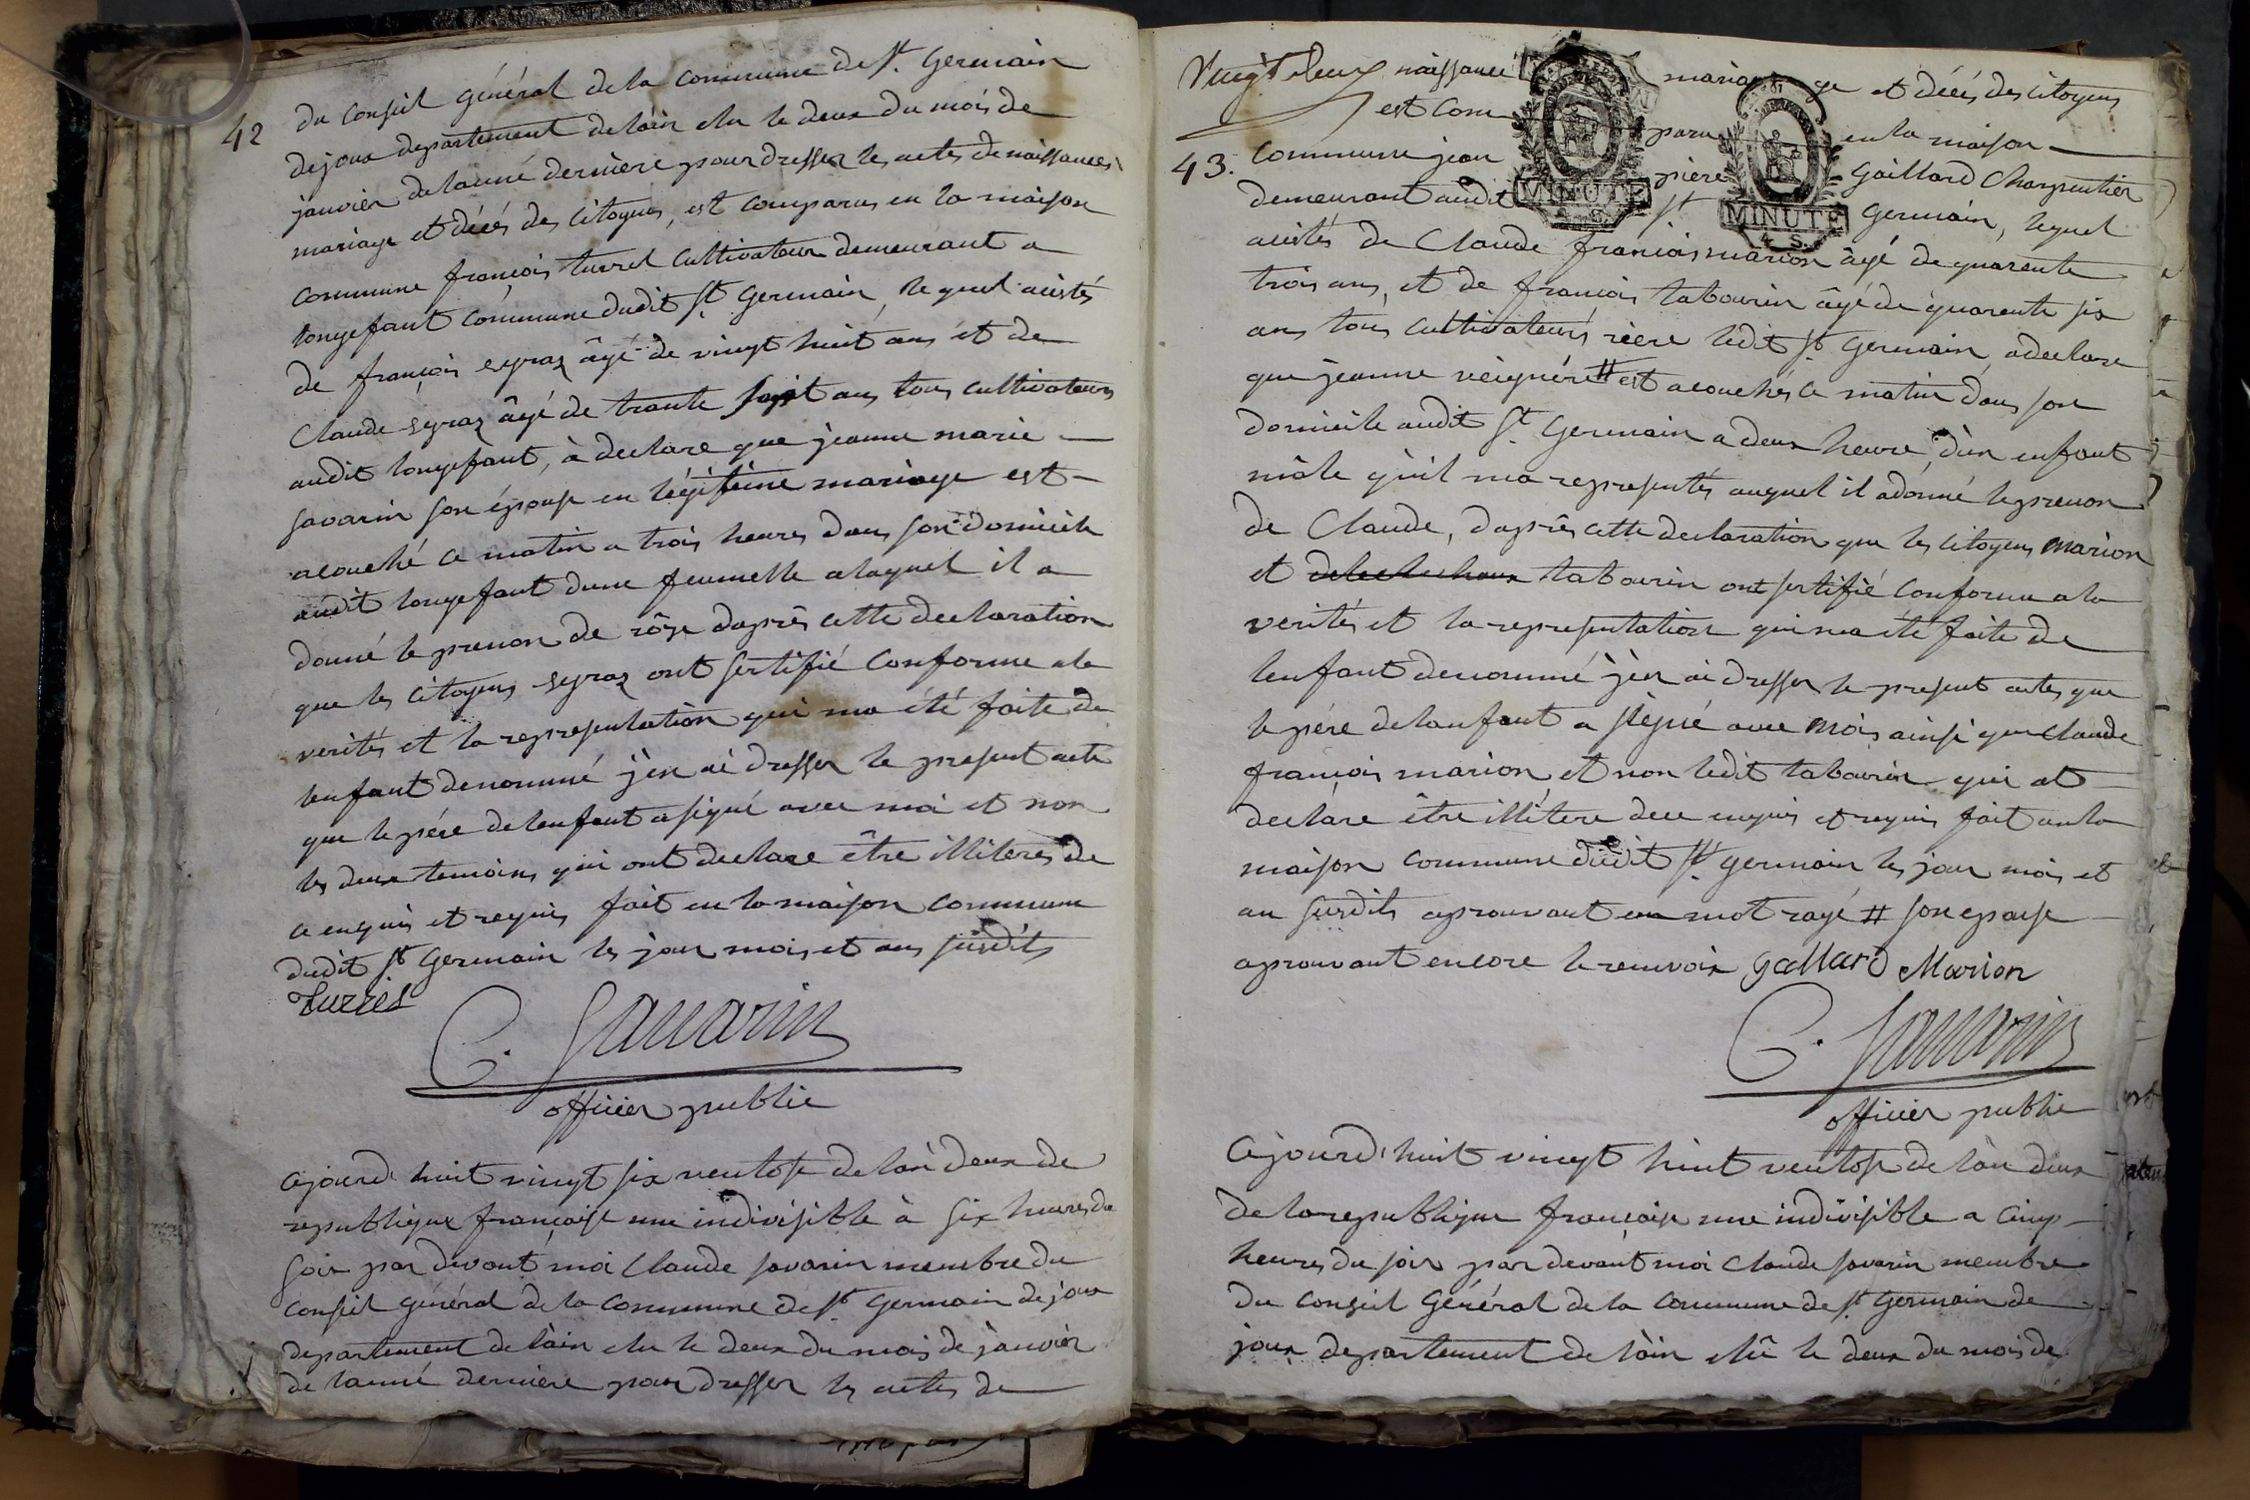 du Conseil général de la Commune de St. Germain
42 de joux departement de lain elu le deux du mois de
janvier de lanné derniere pour dresser les actes de naissances
mariage et décés des citoyens, est comparus en la maison
commune françois turrel cultivateur demeurant a
longefant commune dudit St. Germain, lequel acistés
de françois seyraz âgé de vingt huit ans et de
Claude seyraz âgé de trante sept ans tous cultivateurs
audit longefant, à declare que jeanne marie
savarin son épouse en légitieme mariage est
acouché ce matin a trois heures dans son domicile
audit longefant dune feumelle alaquel il a
donné le prenon de rôse daprês cette declaration
que les citoyens seyraz ont sertifié conforme ala
verités et la representation qui ma été faite de
lenfant denommé j'en ai dresser le present acte
que le pére de lenfant a signé avec moi et non
les deux temoins qui ont declare être illiteres de
ce enquis et requis fait en la maison commune
dudit St. Germain les jour mois et ans susdits
Turrel
C. Savarin
officier public
Cejourd'huit vingt six ventose de lan deux de
republique françoise une indivisible à six heures du
soir par devant moi Claude savarin membre du
Conseil général de la Commune de St Germain de joux
departement de lain elu le deux du mois de janvier
de lanné derniere pour dresser les actes de
Vingt deux naissance mariage et décés des citoyens
est comparu en la maison
43. commune jean piere Gaillard Charpentier
demeurant audit St Germain, lequel
MINUTE
4. S.
MINUTE
4 S.
acistés de Claude françois marion âgé de quarente
trois ans, et de françois tabourin âgé de quarente six
ans tous cultivateurs riere ledit St. Germain, a declare
que jeanne # est acouchés ce matin dans son
domicile audit St. Germain a deux heure, d'un enfant
mâle qu'il ma representés auquel il a donné le prenon
de Claude, daprês cette declaration que les citoyens marion
et tabourin ont sertifié conforme ala
verités et la representation qui ma été faite de
lenfant denommé j'en ai dresser le present actes que
le pére de lenfant a signé avec moi, ainsi que claude
françois marion et non ledit tabourin qui at
declare être illitere de ce enquis et requis fait en la
maison commune dudit St. germain les jour mois et
an susdits aprouvant un mot rayé # son epouse
aprouvant encore le renvoix gallard Marion
C. Savarin
officier public
Cejourd'huit vingt huit ventose de lan deux
de la republique françoise une indivisible a cinq
heures du soir par devant moi Claude savarin membre
du Conseil Général de la Commune de St. Germain de
joux departement de lain elû le deux du mois de